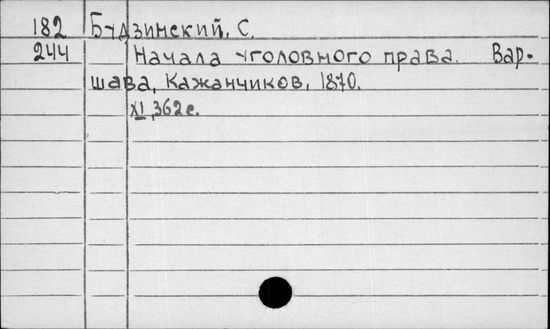 182 Будзинский, С.
244 Начала уголовного права. Вар-
шава, Кажанчиков, 1870.
XI, 362 с.